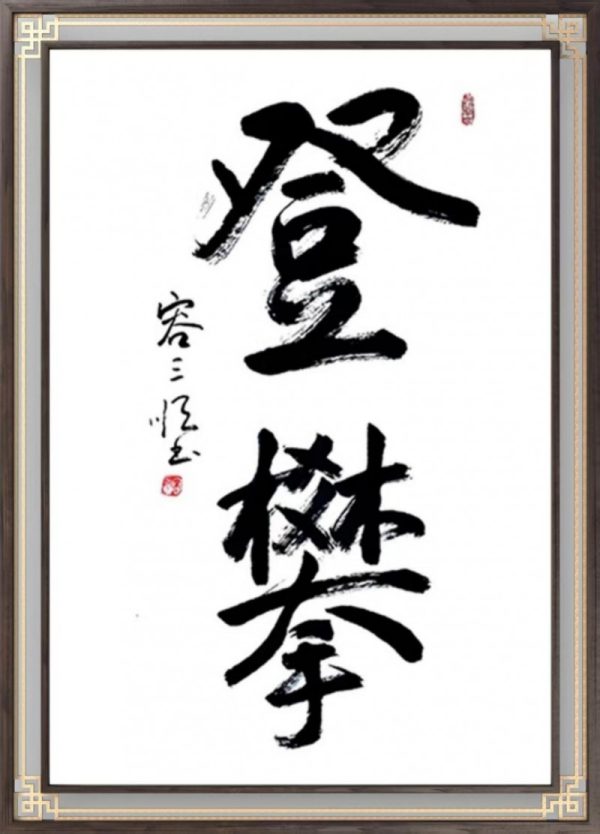 登攀
容三恒书